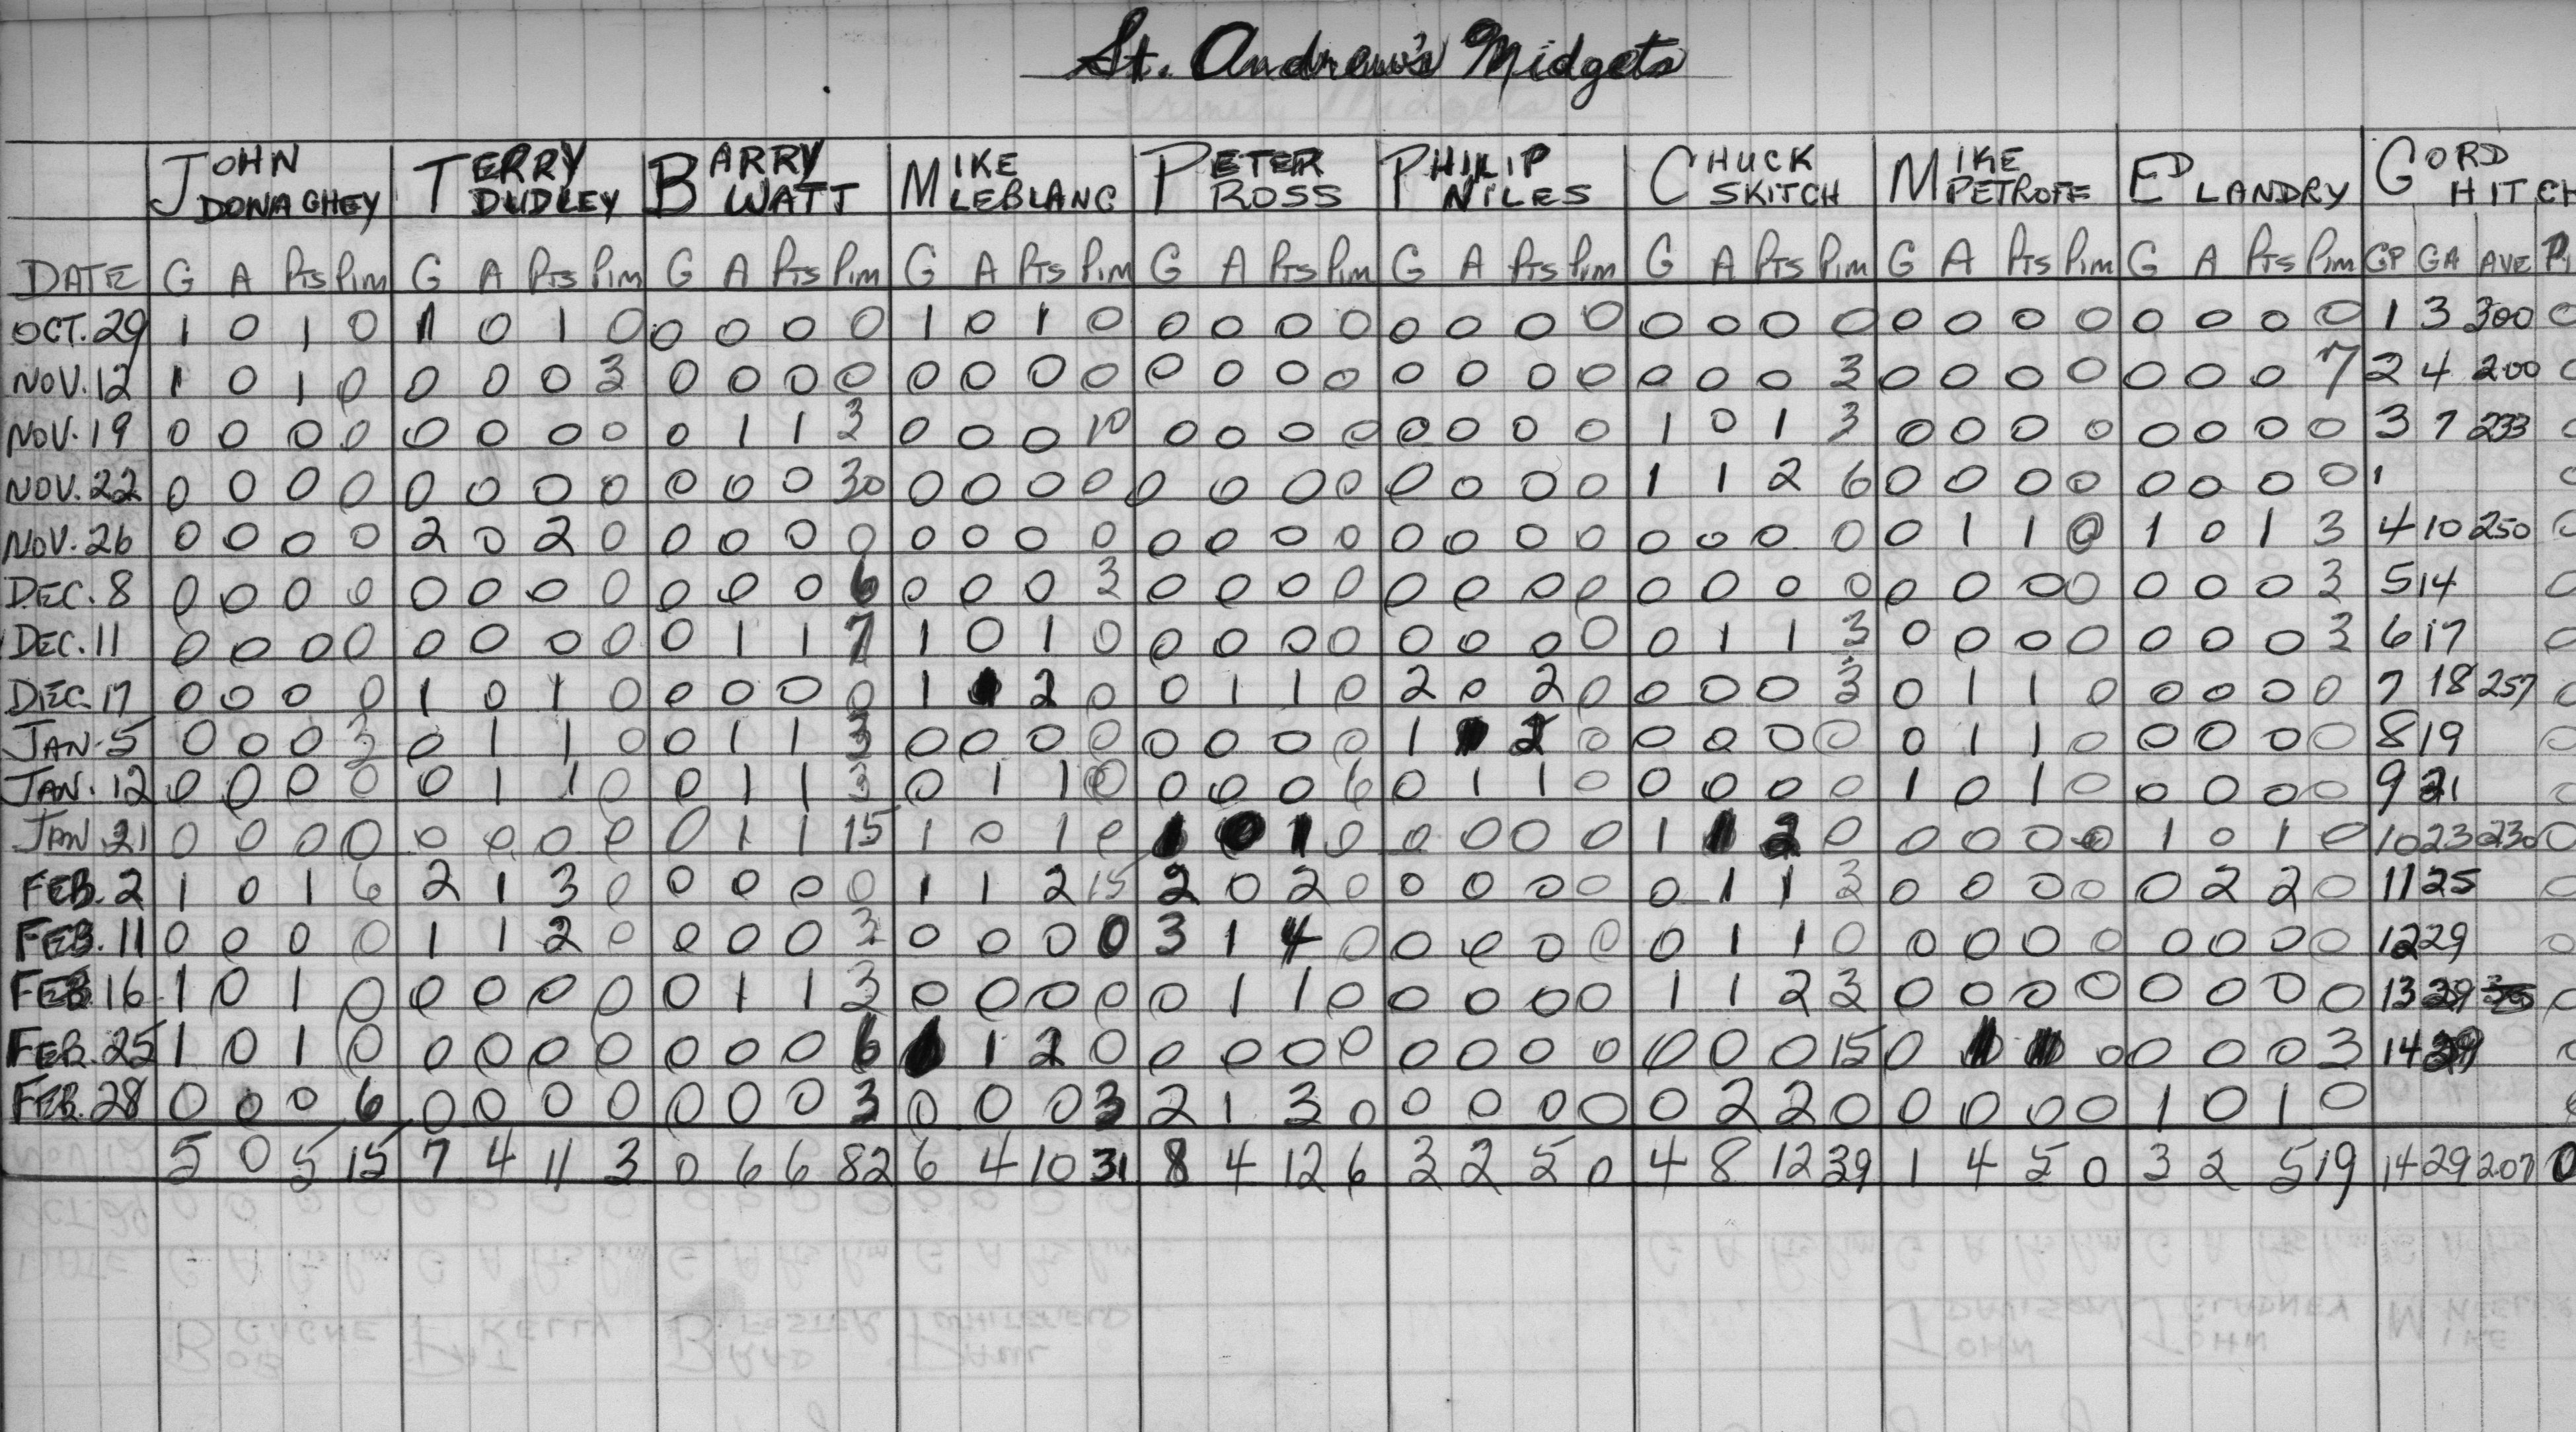 St. Andrew's Midgets
JOHN DONAGHEY TERRY DUDLEY BARRY WATT MIKE LEBLANC PETER ROSS PHILIP NILES CHUCK SKITCH MIKE PETROFF ED LANDRY GORD HITCH
DATE G A Pts Pim G A Pts Pim G A Pts Pim G A Pts Pim G A Pts Pim G A Pts Pim G A Pts Pim G A Pts Pim G A Pts Pim GP GA AVE
OCT. 29 1 0 1 0 1 0 1 0 0 0 0 0 1 0 1 0 0 0 0 0 0 0 0 0 0 0 0 0 0 0 0 0 0 0 0 0 1 3 300
NOV. 12 1 0 1 0 0 0 0 3 0 0 0 0 0 0 0 0 0 0 0 0 0 0 0 0 0 0 0 3 0 0 0 0 0 0 0 7 2 4 200
NOV. 19 0 0 0 0 0 0 0 0 0 1 1 3 0 0 0 10 0 0 0 0 0 0 0 0 1 0 1 3 0 0 0 0 0 0 0 0 3 7 233
NOV. 22 0 0 0 0 0 0 0 0 0 0 0 30 0 0 0 0 0 0 0 0 0 0 0 0 1 1 2 6 0 0 0 0 0 0 0 0 1
NOV. 26 0 0 0 0 2 0 2 0 0 0 0 0 0 0 0 0 0 0 0 0 0 0 0 0 0 0 0 0 0 1 1 0 1 0 1 3 4 10 250
DEC. 8 0 0 0 0 0 0 0 0 0 0 0 6 0 0 0 3 0 0 0 0 0 0 0 0 0 0 0 0 0 0 0 0 0 0 0 3 5 14
DEC. 11 0 0 0 0 0 0 0 0 0 1 1 7 1 0 1 0 0 0 0 0 0 0 0 0 0 1 1 3 0 0 0 0 0 0 0 3 6 17
DEC. 17 0 0 0 0 1 0 1 0 0 0 0 0 1 1 2 0 0 1 1 0 2 0 2 0 0 0 0 3 0 1 1 0 0 0 0 0 7 18 257
JAN. 5 0 0 0 3 0 1 1 0 0 1 1 3 0 0 0 0 0 0 0 0 1 1 2 0 0 0 0 0 0 1 1 0 0 0 0 0 8 19
JAN. 12 0 0 0 0 0 1 1 0 0 1 1 3 0 1 1 0 0 0 0 6 0 1 1 0 0 0 0 0 1 0 1 0 0 0 0 0 9 21
JAN. 21 0 0 0 0 0 0 0 0 0 1 1 15 1 0 1 0 1 0 1 0 0 0 0 0 1 1 2 0 0 0 0 0 1 0 1 0 10 23 230
FEB. 2 1 0 1 6 2 1 3 0 0 0 0 0 1 1 2 15 2 0 2 0 0 0 0 0 0 1 1 3 0 0 0 0 0 2 2 0 11 25
FEB. 11 0 0 0 0 1 1 2 0 0 0 0 3 0 0 0 0 3 1 4 0 0 0 0 0 0 1 1 0 0 0 0 0 0 0 0 0 12 29
FEB. 16 1 0 1 0 0 0 0 0 0 1 1 3 0 0 0 0 0 1 1 0 0 0 0 0 1 1 2 3 0 0 0 0 0 0 0 0 13 29
FEB. 25 1 0 1 0 0 0 0 0 0 0 0 6 1 2 0 0 0 0 0 0 0 0 0 0 0 0 15 0 0 0 0 0 3 14 29
FEB. 28 0 0 0 6 0 0 0 0 0 0 0 3 0 0 0 3 2 1 3 0 0 0 0 0 0 2 2 0 0 0 0 0 1 0 1 0
5 0 5 15 7 4 11 3 0 6 6 82 6 4 10 31 8 4 12 6 3 2 5 0 4 8 12 39 1 4 5 0 3 2 5 19 14 29 207 0